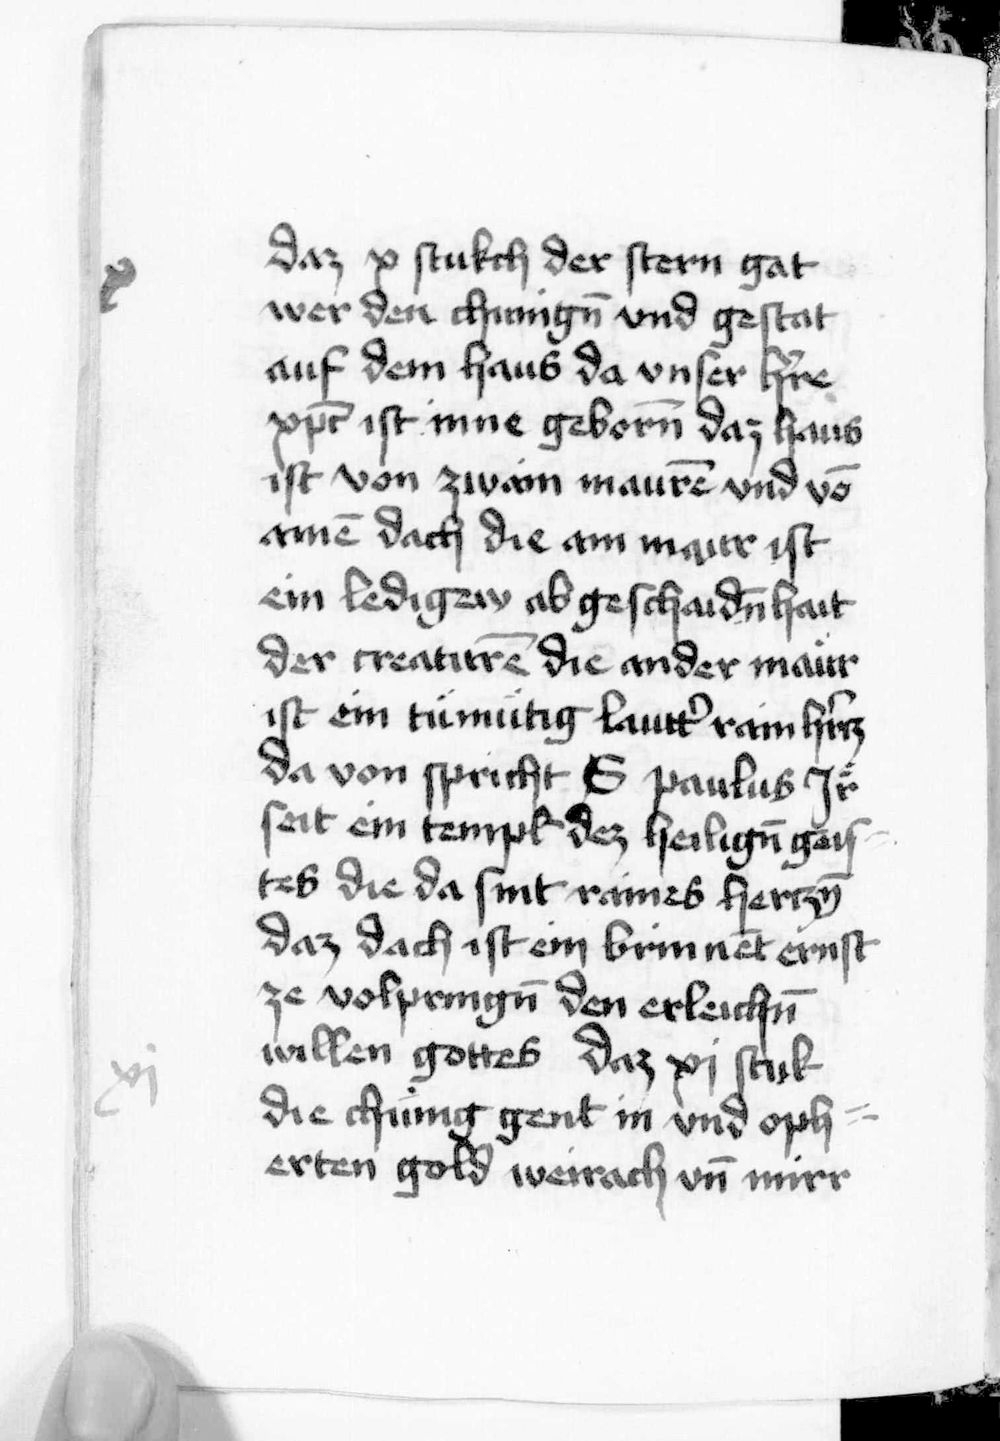 x
daz x stukch der stern gat
wer den chunign̄ vnd gestat
auf dem haus da vnser hr̄re
xp̄c ist inne geborn̄ daz haus
ist von zwain maurē vnd vō
ainē dach die ain maur ist
ein ledigew abgeschaidn̄hait
der creaturē die ander maür
ist ein tiimütig lautt' rain hr̄tz
da von spricht S paulus Jr̄
seit ein templ dez heilign̄ geis=
tes die da sint raines hertzn̄
daz dach ist ein brinnēt ernst
ze volpringn̄ den erleichn̄
willen gottes daz xj stuk
xj
die chünig gent in vnd oph=
erten gold weirach vn̄ mirr